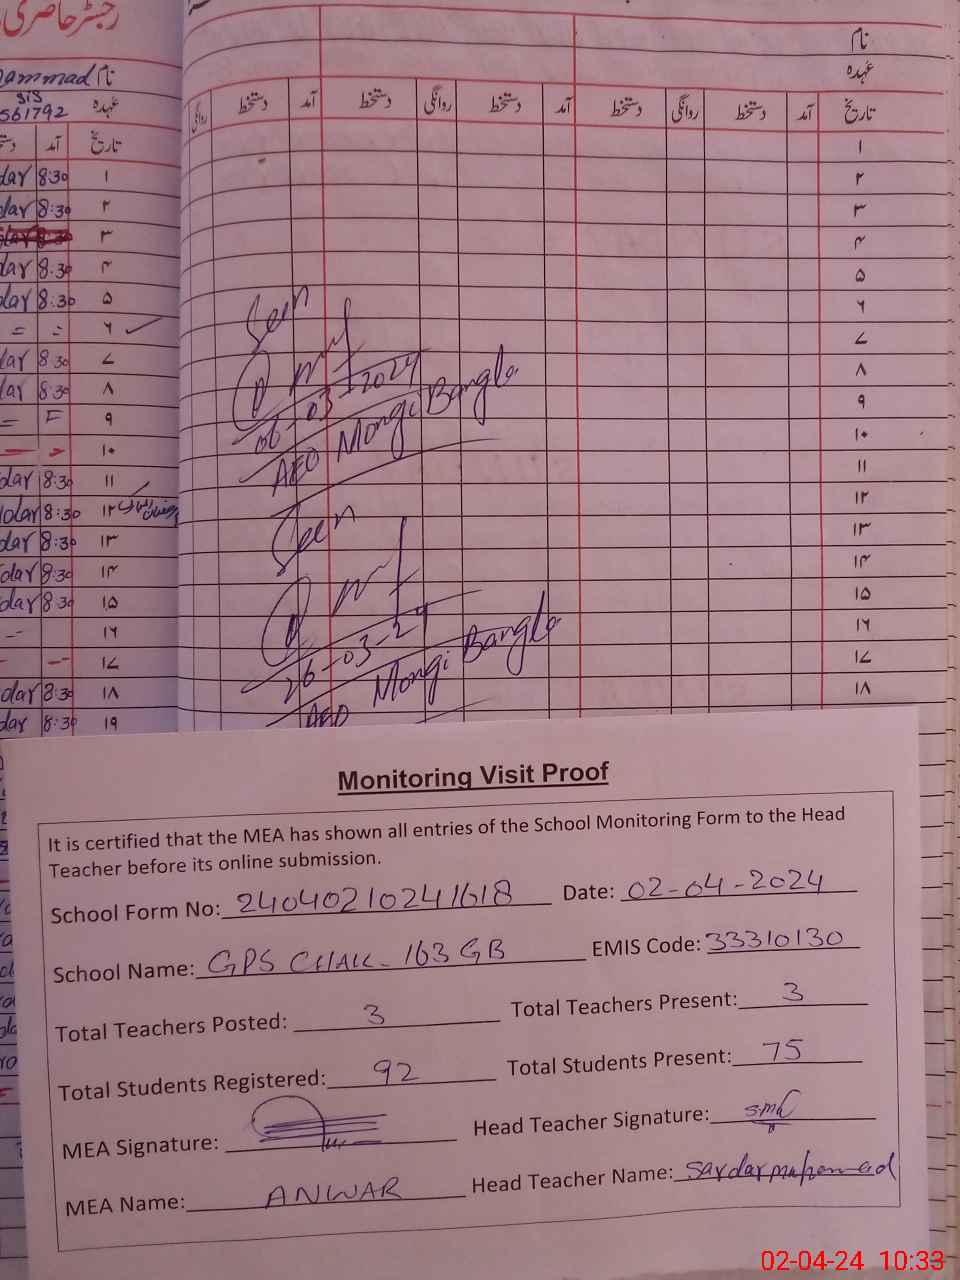 رجسٹر حاضری
نام
عہدہ
SIS
561792
تاریخ آمد
dar 8:30 ۱
dar 8:30 ۲
۳
dar 8:30 ۴
dar 8:30 ۵
= = ۶
dar 8:30 ۷
dar 8:30 ۸
= = ۹
۱۰
dar 8:30 ۱۱
dar 8:30 ۱۲
dar 8:30 ۱۳
dar 8:30 ۱۴
dar 8:30 ۱۵
۱۶
۱۷
dar 8:30 ۱۸
dar 8:30 ۱۹
نام
عہدہ
تاریخ آمد دستخط روانگی دستخط آمد دستخط روانگی دستخط آمد دستخط روانگی
۱
۲
۳
۴
۵
۶
۷
۸
۹
۱۰
۱۱
۱۲
۱۳
۱۴
۱۵
۱۶
۱۷
۱۸
Seen
06-03-2024
AEO Mongi Bangla
Seen
26-03-24
AEO Mongi Bangla
Monitoring Visit Proof
It is certified that the MEA has shown all entries of the School Monitoring Form to the Head
Teacher before its online submission.
School Form No: 24040210241618 Date: 02-04-2024
School Name: GPS CHAK- 163 GB EMIS Code: 33310130
Total Teachers Posted: 3 Total Teachers Present: 3
Total Students Registered: 92 Total Students Present: 75
MEA Signature: Head Teacher Signature:
MEA Name: ANWAR Head Teacher Name: Sardar muhammad
02-04-24 10:33